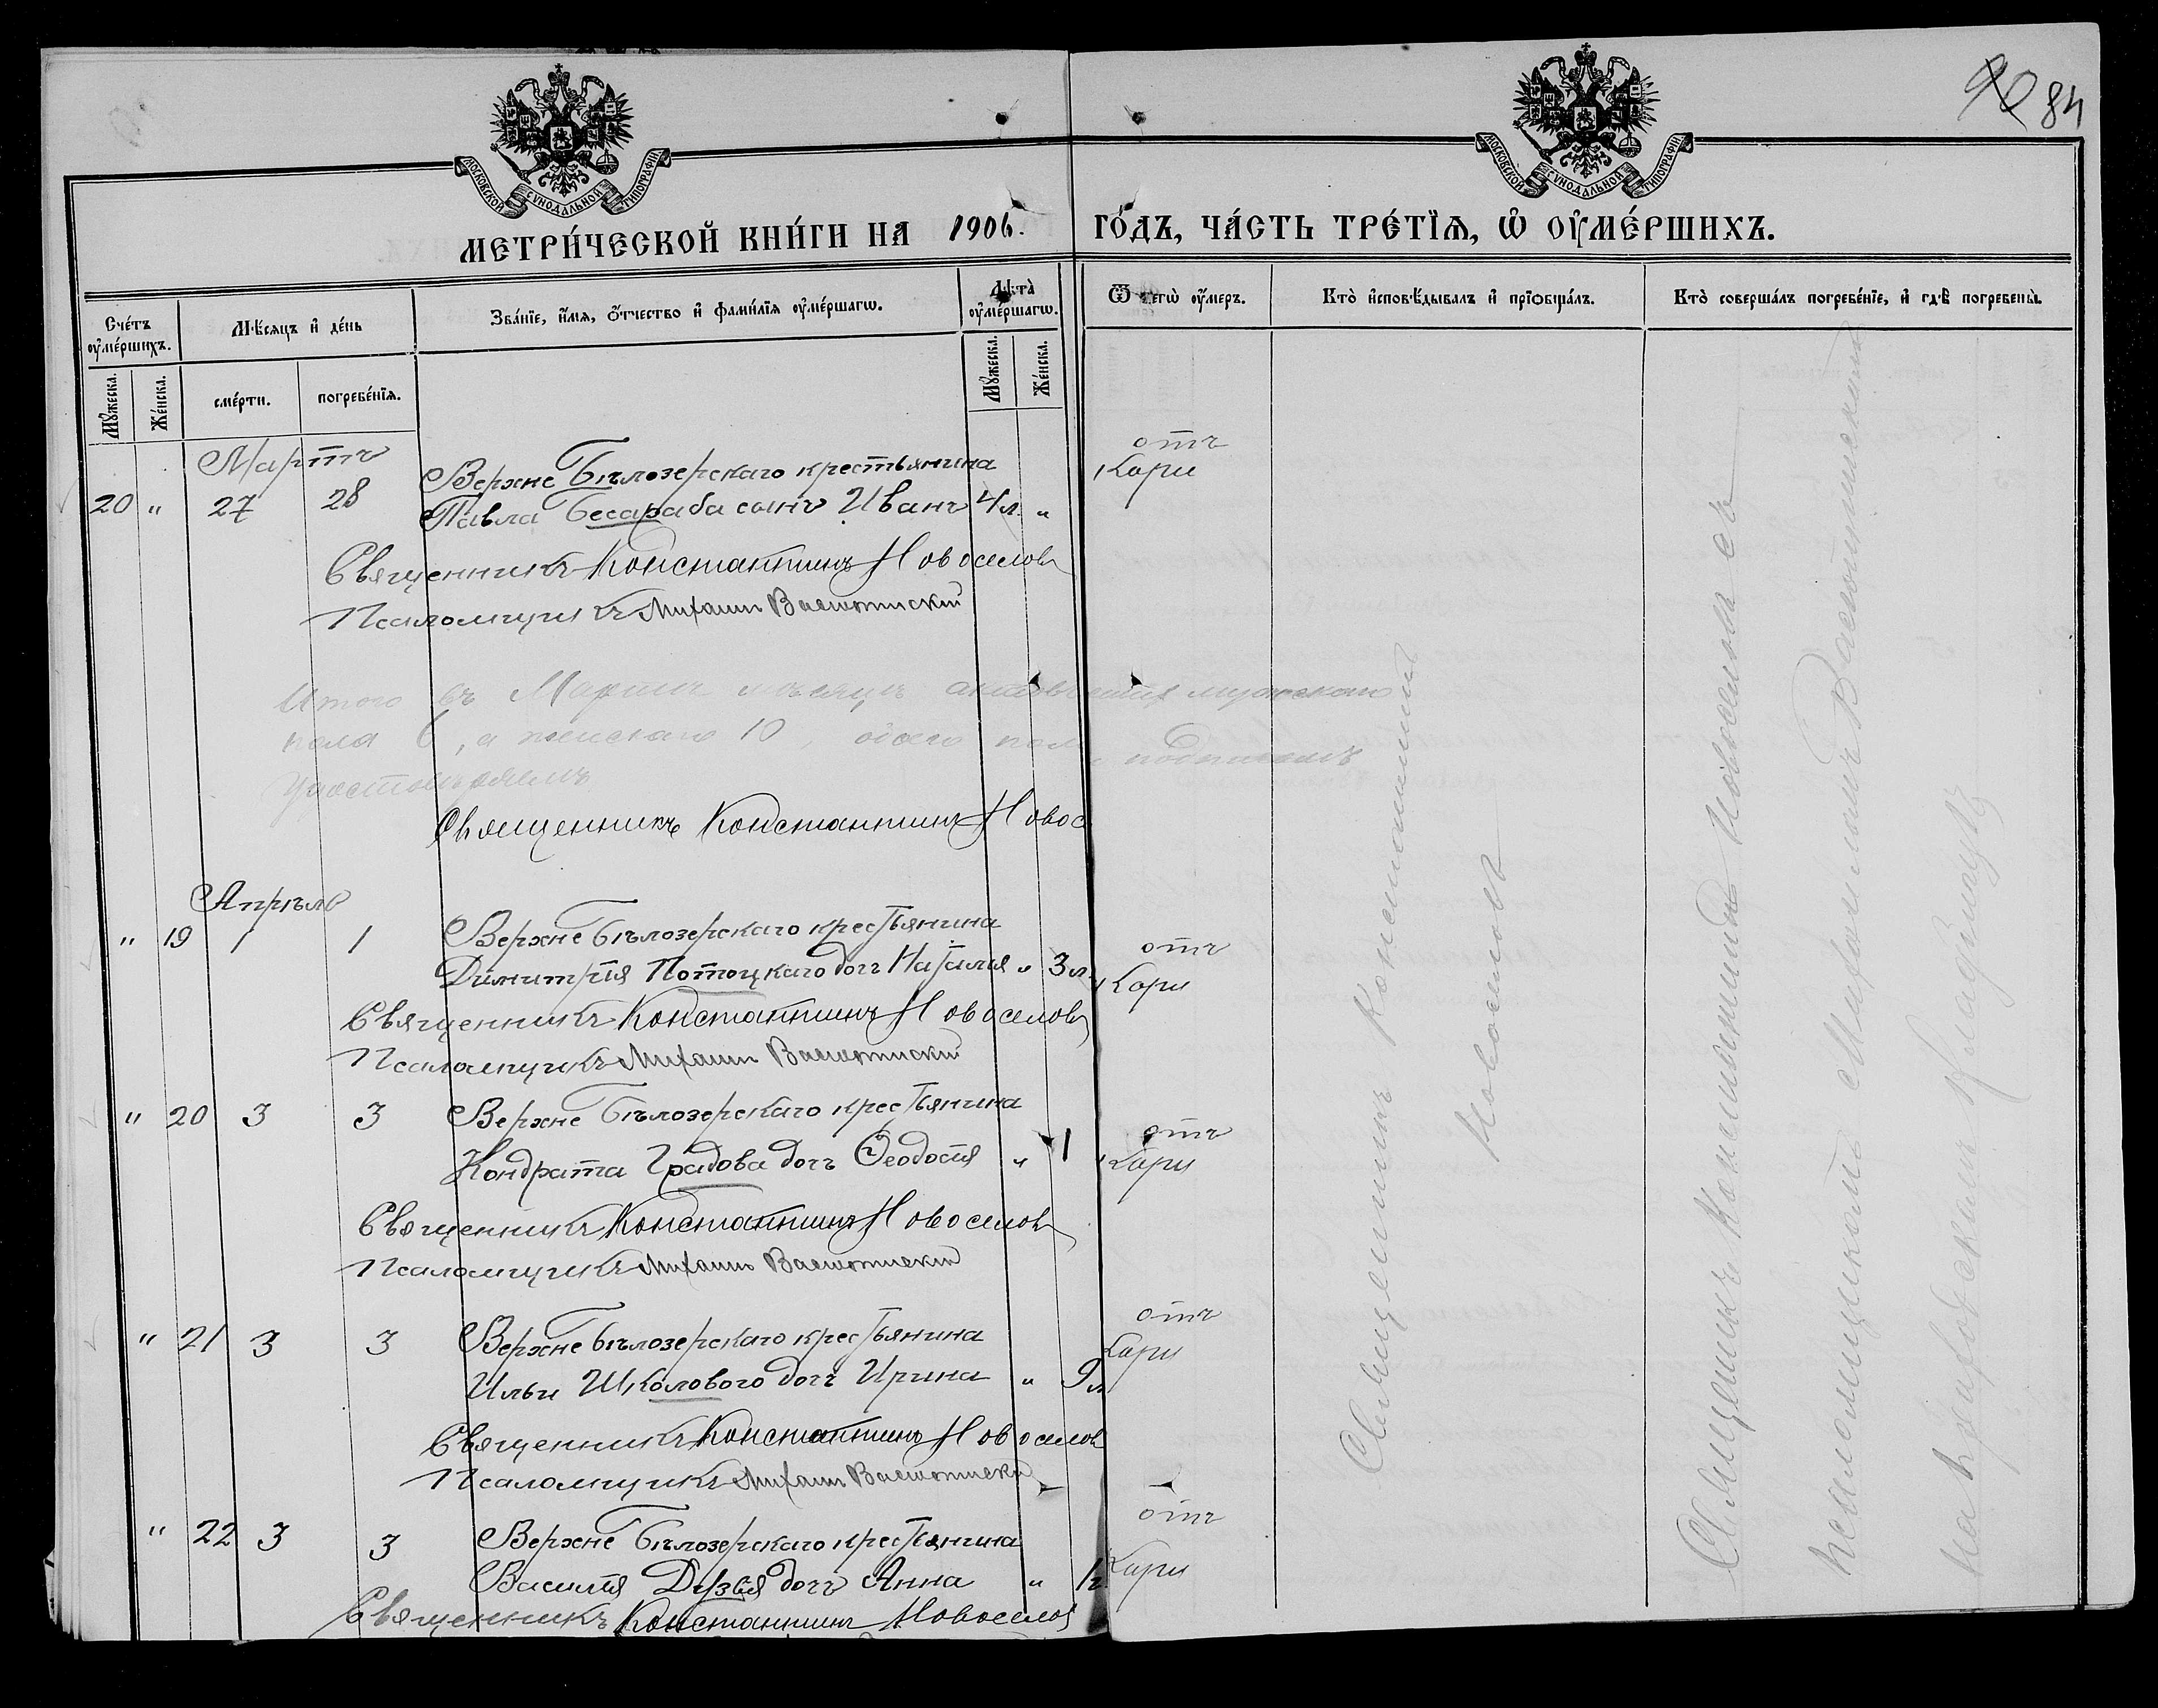 84
МОСКОВСКОЙ СѴНОДАЛЬНОЙ ТИПОГРАФІИ.
МОСКОВСКОЙ СѴНОДАЛЬНОЙ ТИПОГРАФІИ.
МЕТРИ́ЧЕСКОЙ КНИ́ГИ НА 1906. ГО́ДЪ, ЧА́СТЬ ТРЕ́ТЇѦ, Ѽ ОУ҆МЕ́РШИХЪ.
Сче́тъ оу҆ме́ршихъ.
Мѣ́сяцъ и҆ де́нь
Зва́нїе, и҆́мя, ѻ҆́тчество и҆ фами́лїя оу҆ме́ршагѡ.
Лѣ́та̀ оу҆ме́ршагѡ.
Ѿ чегѡ̀ оу҆́меръ.
Кто̀ и҆сповѣ́дывалъ и҆ прїѻбща́лъ.
Кто̀ соверша́лъ погребе́нїе, и҆ гдѣ̀ погребены̀.
Мꙋ́жеска.
Же́нска.
сме́рти.
погребе́нїя.
Мꙋ́жеска.
Же́нска.
Мартъ
20 " 27 28 Верхне Бѣлозерскаго крестьянина
Павла Бесараба сынъ Иванъ 4 л. "
отъ
Кори
Священникъ Константинъ Новоселовъ
Псаломщикъ Михаилъ
Итого въ Мартѣ мѣсяцѣ мужескаго
пола 6, а женскаго 10, обоего пола подписомъ
удостовѣряемъ
Священникъ Константинъ Новос
Апрѣль
" 19 1 1 Верхне Бѣлозерскаго крестьянина
Димитрія Потоцкаго дочь Наталія " 3 л.
отъ
Кори
Священникъ Константинъ Новоселовъ
Псаломщикъ Михаилъ
" 20 3 3 Верхне Бѣлозерскаго крестьянина
Кондрата Градова дочь Ѳеодосія " 1
отъ
Кори
Священникъ Константинъ Новоселовъ
Псаломщикъ Михаилъ
" 21 3 3 Верхне Бѣлозерскаго крестьянина
Ильи Школового дочь Ирина " 9 л
отъ
Кори
Священникъ Константинъ Новоселов
Псаломщикъ Михаилъ
" 22 3 3 Верхне Бѣлозерскаго крестьянина
Василія дочь Анна " 1 г.
отъ
Кори
Священникъ Константинъ Новоселов
Священникъ Константинъ
Новоселовъ
Священникъ Константинъ Новоселовъ съ
псаломщикомъ Михаиломъ
на приходскомъ кладбищѣ